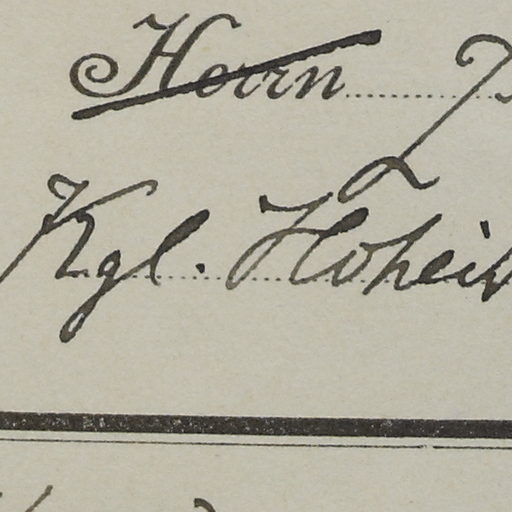 Herrn
Kgl. Hoheit